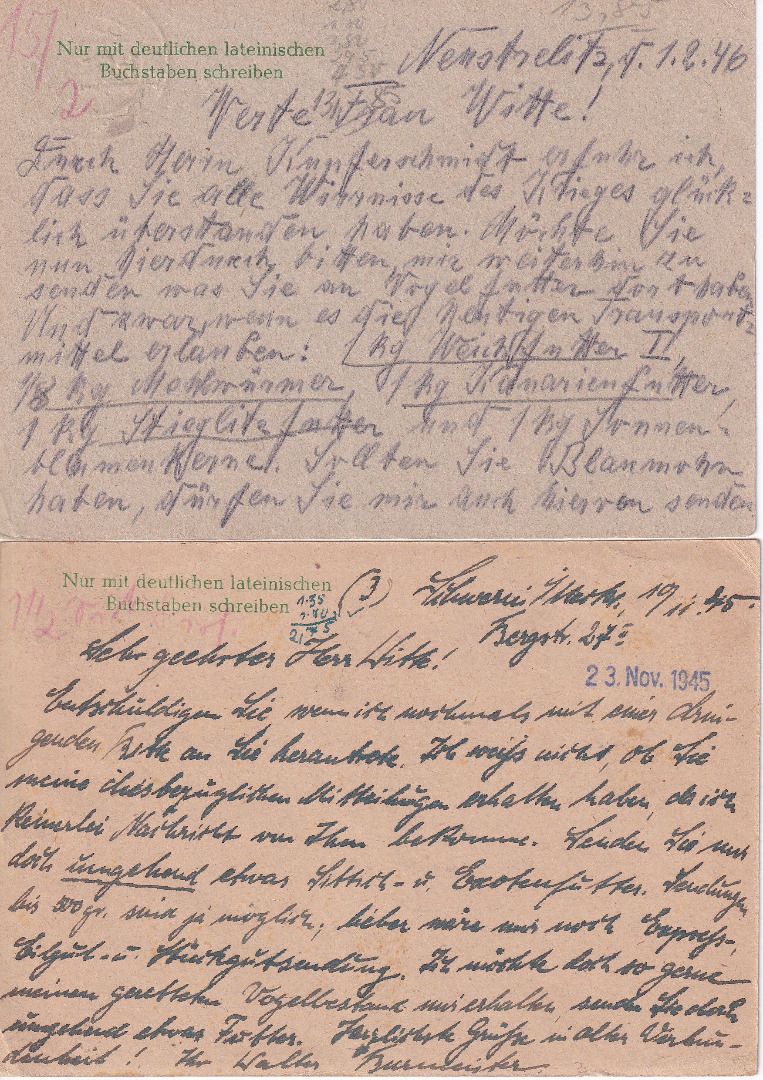 15/
2
13,85
Nur mit deutlichen lateinischen
Buchstaben schreiben
Neustrelitz, d. 1.2.46
Werte Frau Witte!
Durch Herrn Kupferschmidt erfuhr ich,
dass Sie alle Wirrnisse des Krieges glück=
lich überstanden haben. Möchte Sie
nun hierdurch bitten, mir weiterhin zu
senden was Sie an Vogelfutter dort haben
Und zwar, wenn es die heutigen Transport=
mittel erlauben: 1 kg Weichfutter I,
1/8 kg Mehlwürmer, 1 kg Kanarienfutter,
1 kg Stieglitzfutter und 1 kg Sonnen=
blumenkerne. Sollten Sie Blaumohn
haben, dürfen Sie mir auch hiervon senden
Nur mit deutlichen lateinischen
Buchstaben schreiben
(3)
Schwerin/Warthe, 19/11.45.
Bergstr. 27 II
Sehr geehrter Herr Witte!
23. Nov. 1945
Entschuldigen Sie wenn ich nochmals mit einer drin-
genden Bitte an Sie herantrete. Ich weiß nicht, ob Sie
meine diesbezüglichen Mitteilungen erhalten haben, da ich
keinerlei Nachricht von Ihnen bekomme. Senden Sie mir
doch umgehend etwas Sittich- u. Exotenfutter. Sendungen
bis 500 gr. sind ja möglich, lieber wäre mir noch Express-,
Eilgut- u. Stückgutsendung. Ich möchte doch so gerne
meinen geretteten Vogelbestand mir erhalten, senden Sie doch
umgehend etwas Futter. Herzlichste Grüße in alter Verbun-
denheit! Ihr Walter Burmeister